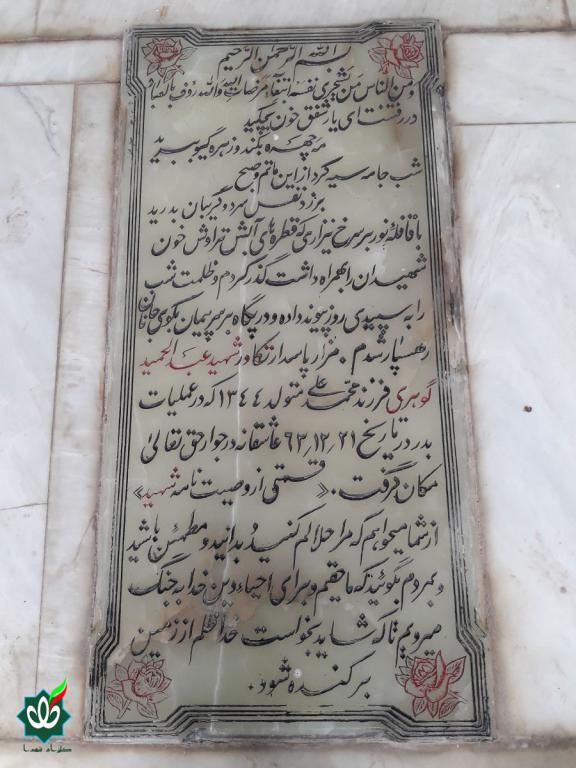 بسم الله الرحمن الرحیم
ومن الناس من یشری نفسه ابتغاء مرضات الله والله رؤف بالعباد
در رفتنت ای یار شفق خون بچکید
مه چهره بکند و زهره گیسو ببرید
شب جامه سیه کرد از این ماتم و صبح
بر زد نفس سرد و گریبان بدرید
با قافله نور بر سرخ نیزاری که قطره های آبش تراوش خون
شهیدان را بهمراه داشت گذر کردم و ظلمت شب
را به سپیدی روز پیوند داده و در پگاه بر سر پیمان بکوی جانان
رهسپار شدم . مزار پاسدار تکاور شهید عبدالحمید
گوهری فرزند محمد علی متولد ۱۳۴۴ که در عملیات
بدر در تاریخ ۶۳٫۱۲٫۲۱ عاشقانه در جوار حق تعالی
مکان گرفت . « قسمتی از وصیت نامه شهید »
از شما میخواهم که مرا حلالم کنید و بدانید و مطمئن باشید
و بمردم بگوئید که ما حقیم و برای احیاء دین خدا به جنگ
میرویم تا که شاید بخواست خدا ظلم از زمین
بر کنده شود .